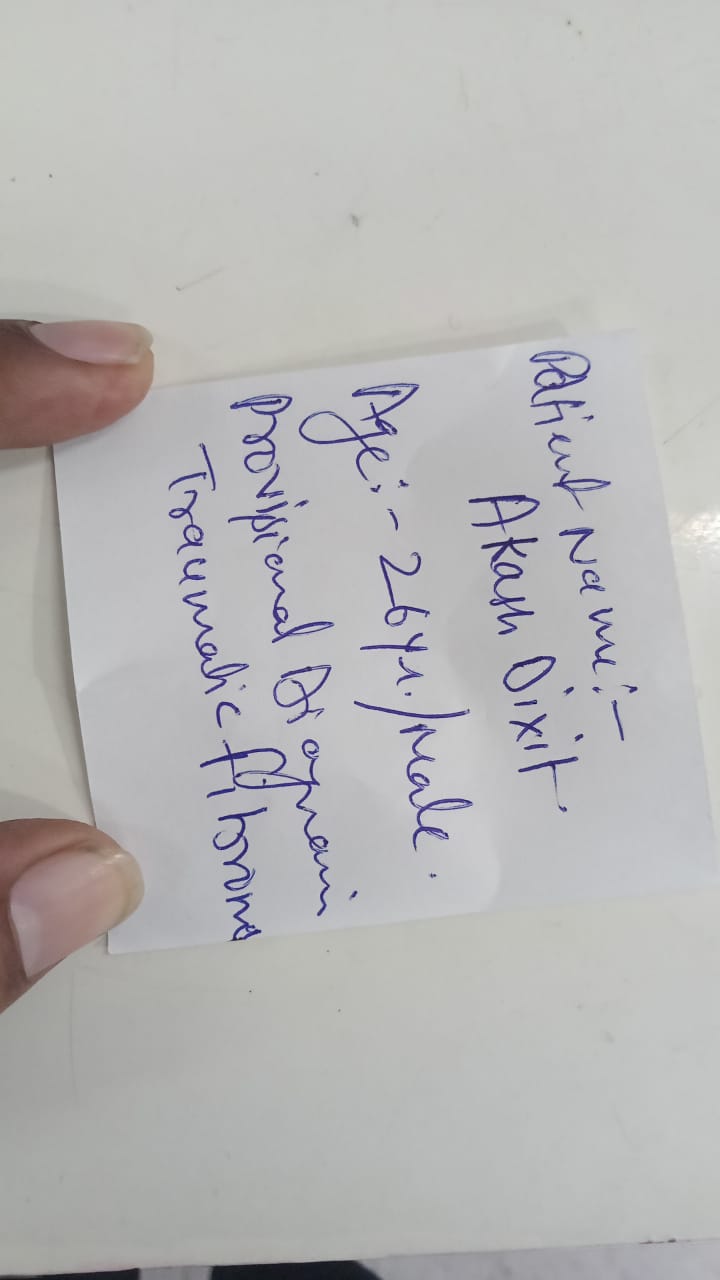 Patient Name:-
Akash Dixit.
Age:- 26yr./Male.
Provisional Diagnosis
Traumatic fibroma